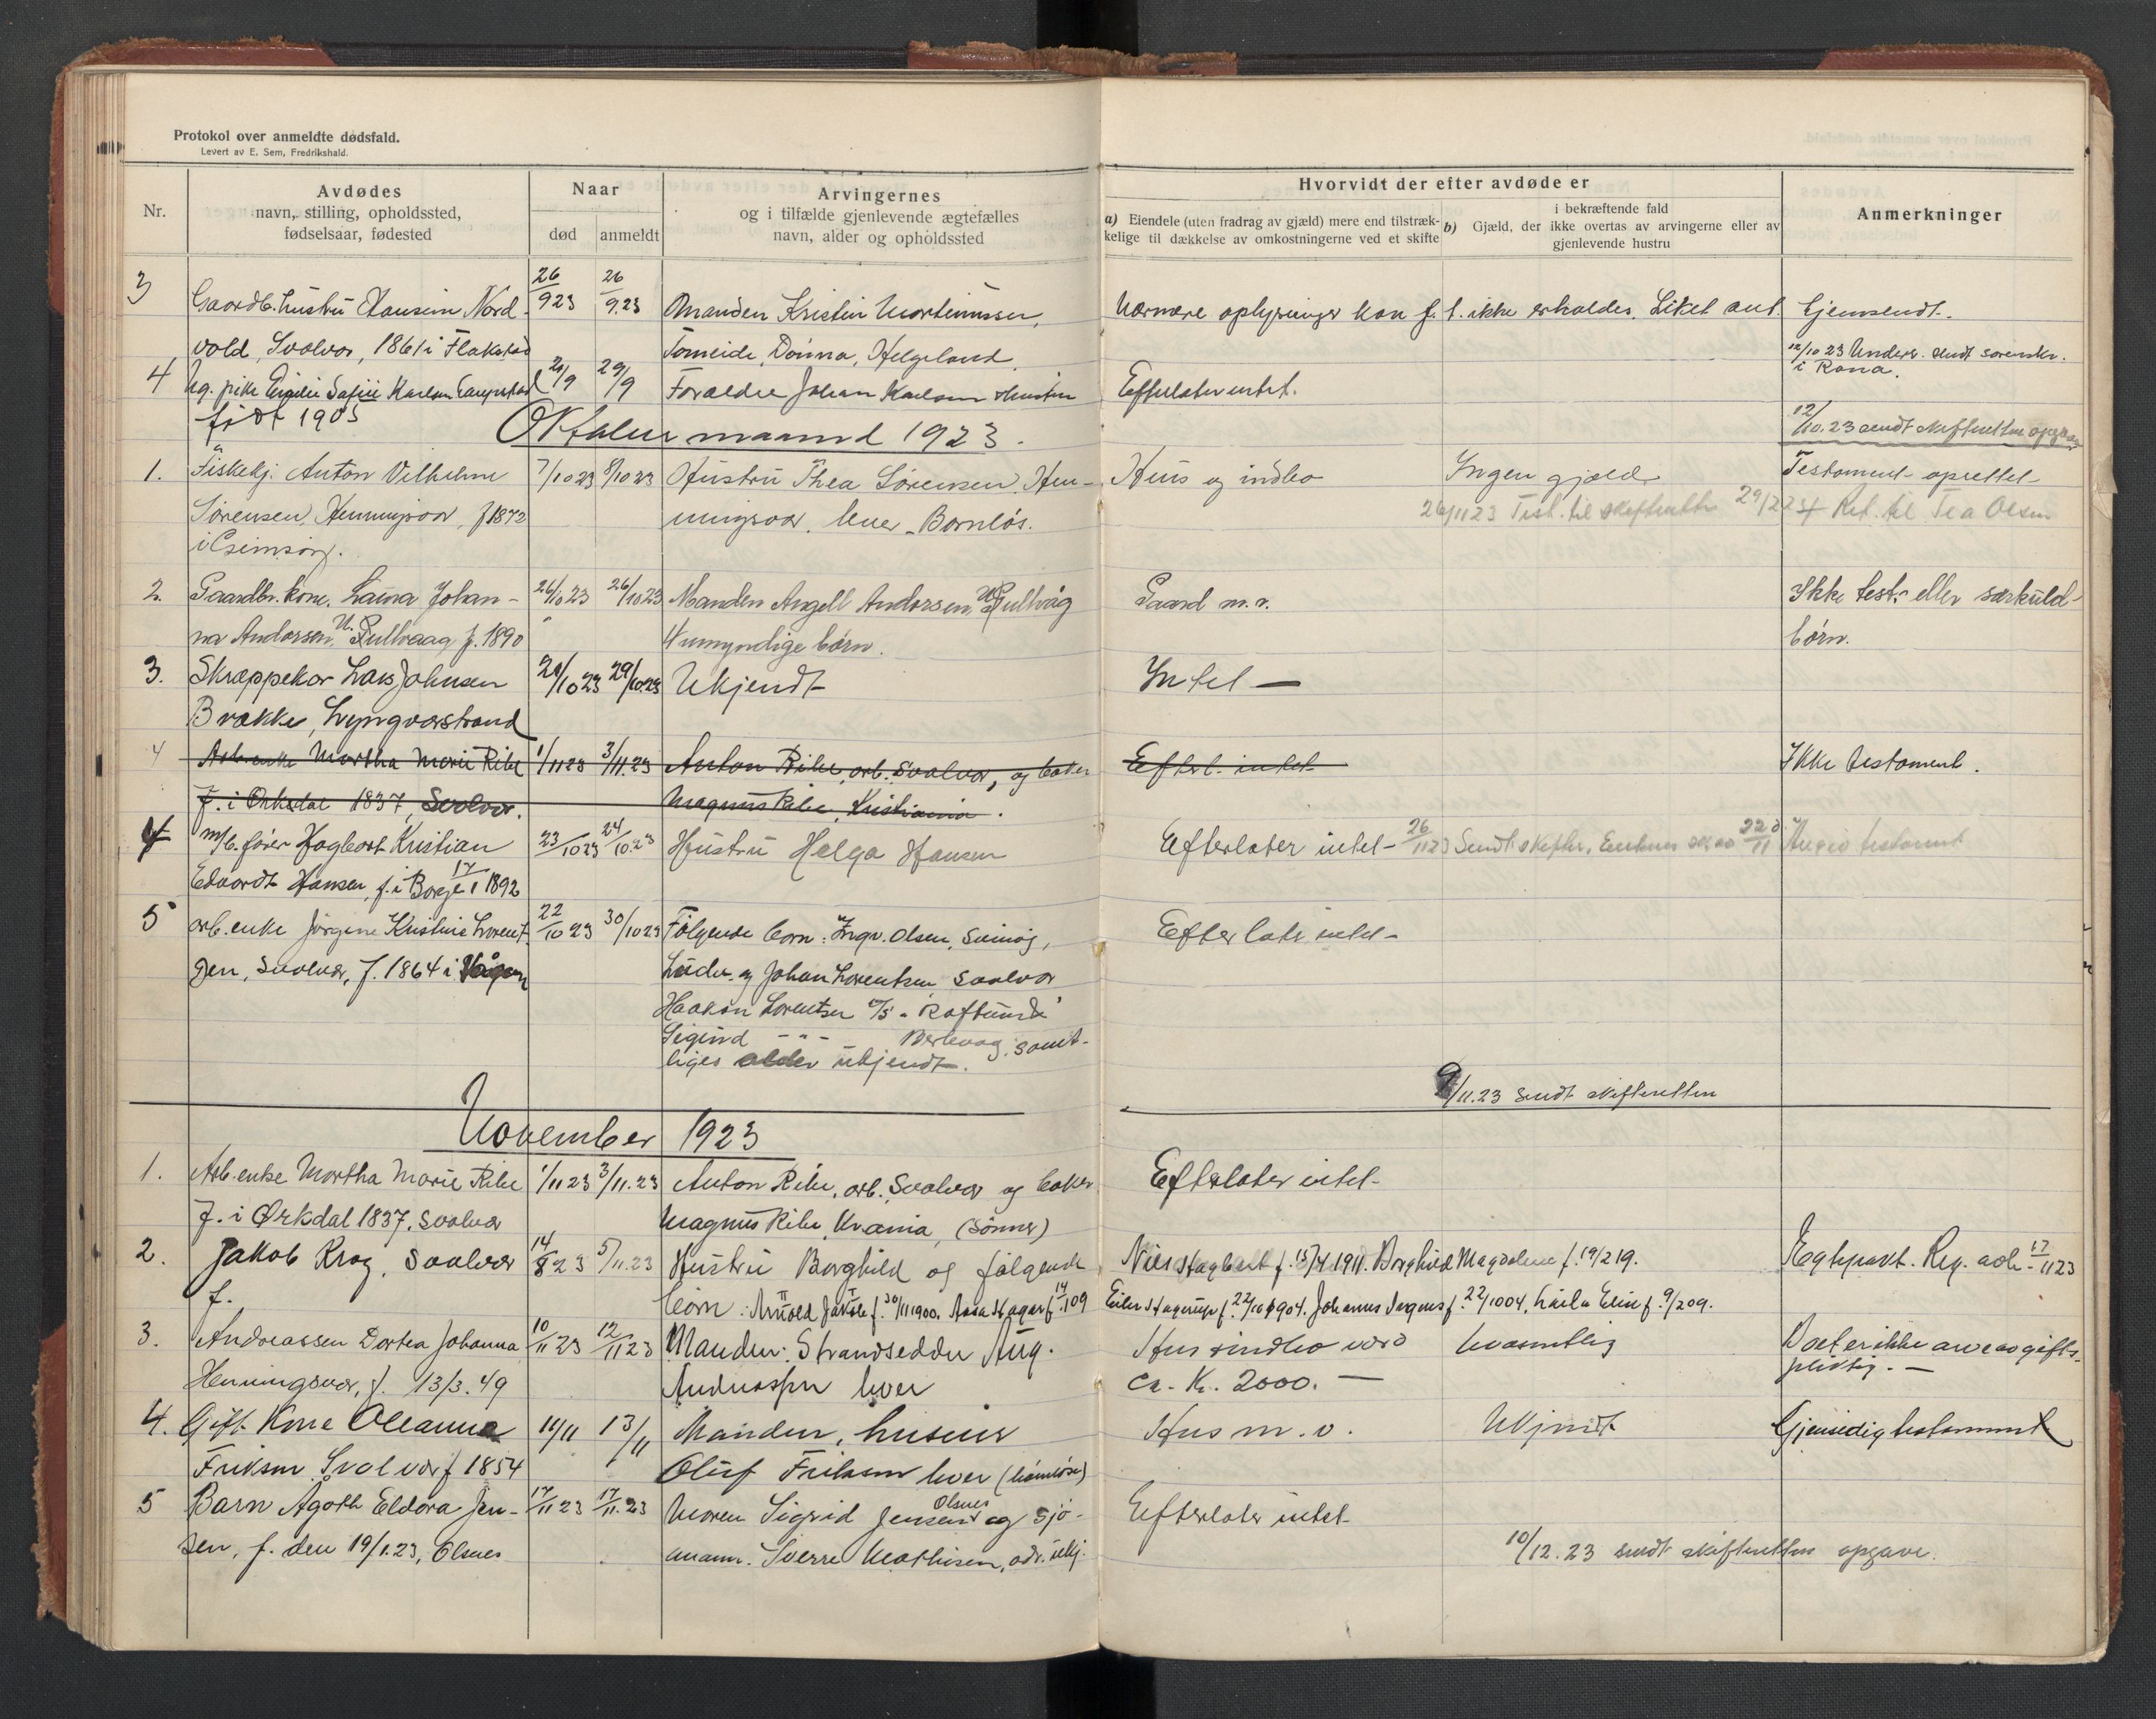 Protokol over anmeldte dødsfald.
Levert av E. Sem, Fredrikshald.
Nr.
Avdødes
navn, stilling, opholdssted,
fødselsaar, fødested
Naar
død
anmeldt
Arvingernes
og i tilfælde gjenlevende ægtefælles
navn, alder og opholdssted
Hvorvidt der efter avdøde er
a) Eiendele (uten fradrag av gjæld) mere end tilstræk-
kelige til dækkelse av omkostningerne ved et skifte
i bekræftende fald
b) Gjæld, der ikke overtas av arvingerne eller av
gjenlevende hustru
Anmerkninger
3 Gaardb. hustru Hansine Nord- 26/9 23 26/9.23 Manden Kristen Mortinussen, Nærmere oplysninger kan f. t. ikke erholdes. Liket ant. hjemsendt.
vold, Svolvær, 1861 i Flakstad Tomeide, Dønna, Helgeland 12/10 23 Underr. sendt sorenskr. i Rana.
4 Ug. pike Karlsen 29/9 29/9 Forældre Johan Karlsen Efterlater intet.
født 1905
Oktober maaned 1923.
12/10.23 sendt skifteretten opgave
1. Fiskekj. Anton Vilhelm 7/10 23 8/10 23 Hustru Thea Sørensen, Hen- Hus og indbo Ingen gjæld Testament oprettet
Sørensen, Henningsvær, f 1872 ningsvær. Barnløs. 26/11 23 Test. til skifteretten Ret. til Tea Olsen
i Gimsøy.
2. Gaardbr. kone. Laura Johan- 26/10 23 26/10 23 Manden Angell Andorsen, U. Gullvåg Gaard m.v. Ikke test. eller særkuld-
na Andorsen, U. Gullvaag f. 1890 4 umyndige børn. børn.
3. Skræppekar Lars Johnsen 28/10 23 29/10 23 Ukjendt Intet —
Brække, Lyngværstrand
4 Arb. enke Martha Marie Ribe 1/11 23 3/11.23 Anton Ribe, arb. Svolvær, og baker Efterl. intet Ikke testament.
f. i Orkdal 1837, Svolvær. Magnus Ribe, Kristiania.
4 m/b. fører Hagbart Kristian 23/10 23 24/10.23 Hustru Helga Hansen Efterlater intet- 26/11 23 Sendt skifter.
Edvardt Hansen, f. i Borge 17/1 1892
5 arb. enke Jørgine Kristine Lorent- 22/10 23 30/10 23 Følgende børn: Ingv. Olsen, Svinøy, Efterlater intet-
zen, Svolvær, f. 1864 i Vågan Lüder og Johan Lorentsen Svolvær
Haakon Lorentsen D/S "Raftsund"
Sigurd - - - Berlevag, samt-
liges alder ukjendt.
9/11.23 sendt skifteretten
November 1923
1. Arb. enke Martha Marie Ribe 1/11 23 3/11.23 Anton Ribe, arb. Svolvær og baker Efterlater intet-
f. i Ørkdal 1837, Svolvær Magnus Ribe, Krania, (sønner)
2. Jakob Krog, Svolvær 14/8 23 5/11.23 Hustru Borghild og følgende Nils Hagbart f. 15/4 1911. Borghild Magdalene f. 19/2 19. Ægtepakt. Reg. adv. 17/11 23
f. børn: Arnold Jakob f. 30/11 1900. Eiler Hagerup f. 22/10 1904. Johannes f. 22/10 04, Laila Elise f. 9/2 09.
3. Andreassen Dortea Johanna 10/11 23 12/11 23 Manden: Strandsedder Aug. Hus & indbo værd uvæsentlig Boet er ikke arveavgifts-
Henningsvær, f. 13/3.49 Andreassen her ca. Kr. 2000. — pliktig. —
4. Gift Kone Oleanna 10/11 13/11 Manden, huseier Hus m.v. Ukjendt Gjensidig testament
Eriksen Svolvær f 1854 Oluf Eriksen her (barnløse)
5 Barn Ågoth Eldora Jen- 17/11 23 17/11.23 Moren Sigrid Jensen Olsnes og sjø- Efterlater intet-
sen, f. den 19/1.23, Olsnes mann. Sverre Mathisen, adr. ukj.
10/12.23 sendt skifteretten opgave.